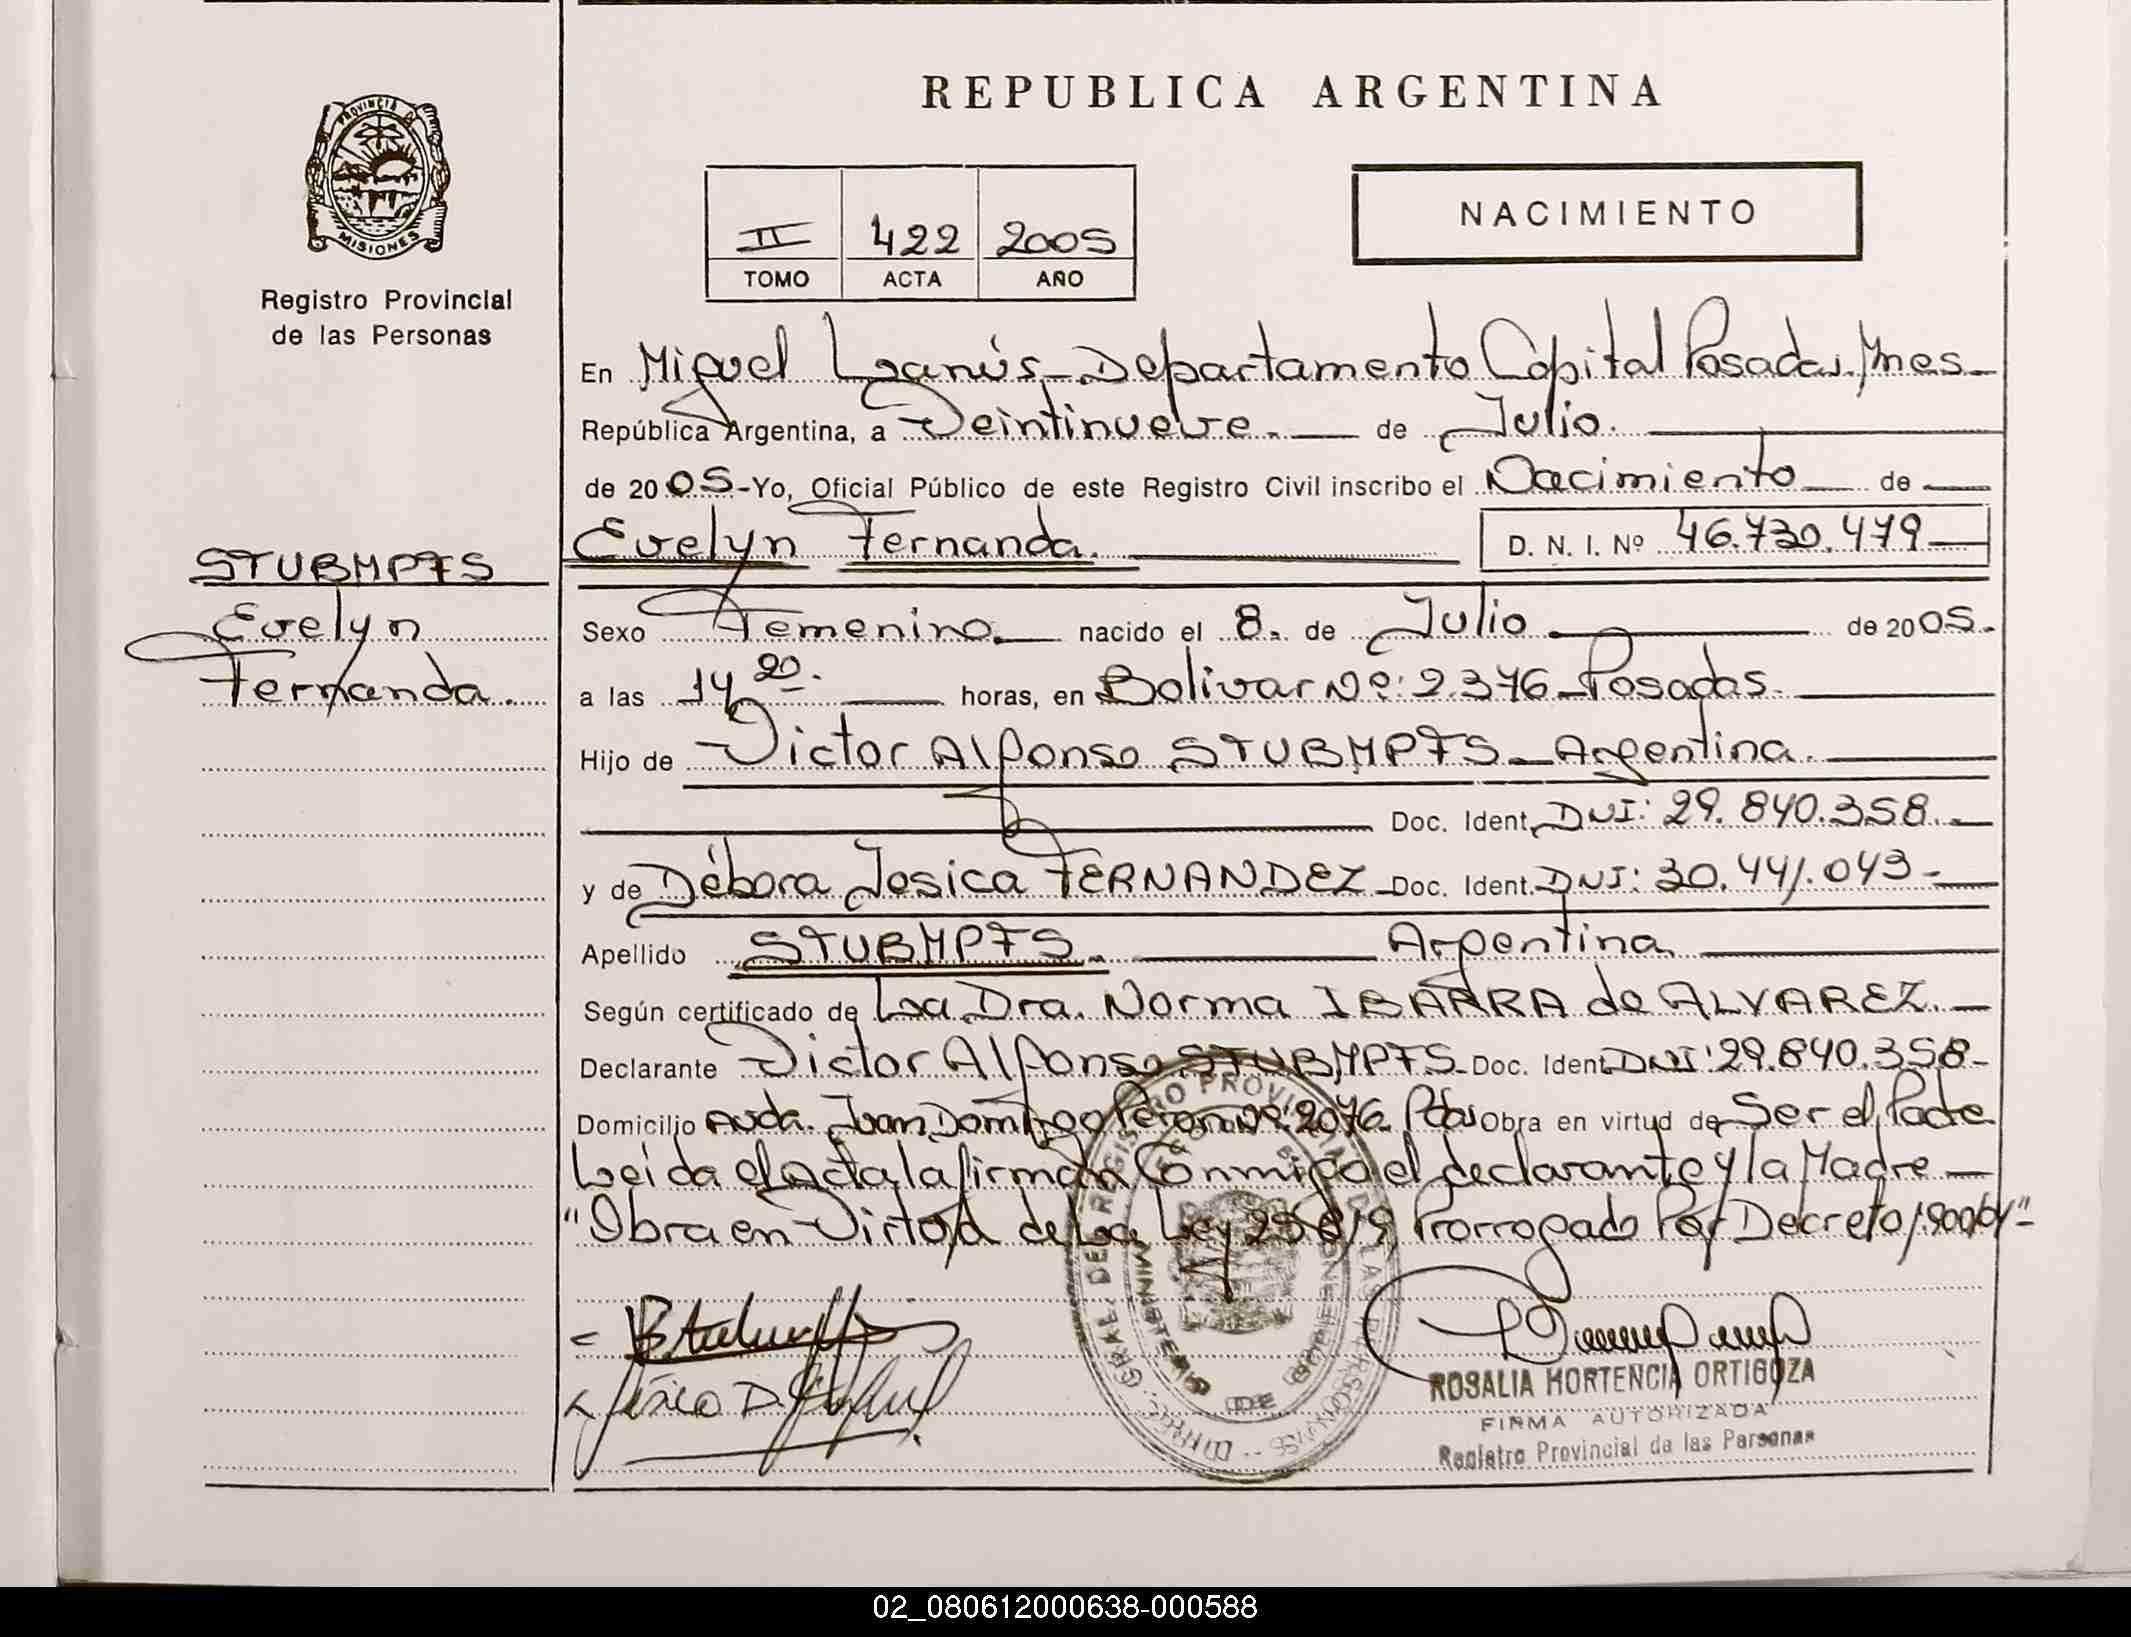 REPUBLICA ARGENTINA
PROVINCIA
MISIONES
Registro Provincial
de las Personas
II 422 2005
TOMO ACTA AÑO
NACIMIENTO
En Miguel Lanús, Departamento Capital Posadas, Mnes
República Argentina, a Veintinueve de Julio.
de 2005 - Yo, Oficial Público de este Registro Civil inscribo el Nacimiento de
Evelyn Fernanda. D. N. I. Nº 46.730.479
STUBMPFS
Evelyn
Fernanda.
Sexo Femenino. nacido el 8. de Julio de 2005.
a las 14 20. horas, en Bolivar Nº: 2.376 - Posadas.
Hijo de Victor Alfonso STUBMPFS - Argentina.
Doc. Ident. DNI: 29.840.358.
y de Débora Jesica FERNANDEZ - Doc. Ident. DNI: 30.441.043 -
Apellido STUBMPFS. Argentina
Según certificado de La Dra. Norma IBARRA de ALVAREZ.
Declarante Victor Alfonso STUBMPFS - Doc. Ident. DNI: 29.840.358 -
Domicilio Avda. Juan Domingo Peron Nº: 2076 Pdas Obra en virtud de Ser el Padre
Leida el acta la firman Conmigo el declarante y la Madre
"Obra en Virtud de La Ley 25.819 Prorrogado Por Decreto
DIREC. GRAL. DEL REGISTRO PROVINCIAL DE LAS PERSONAS
MINISTERIO DE GOBIERNO
ROSALIA HORTENCIA ORTIGOZA
FIRMA AUTORIZADA
Registro Provincial de las Personas
02_080612000638-000588